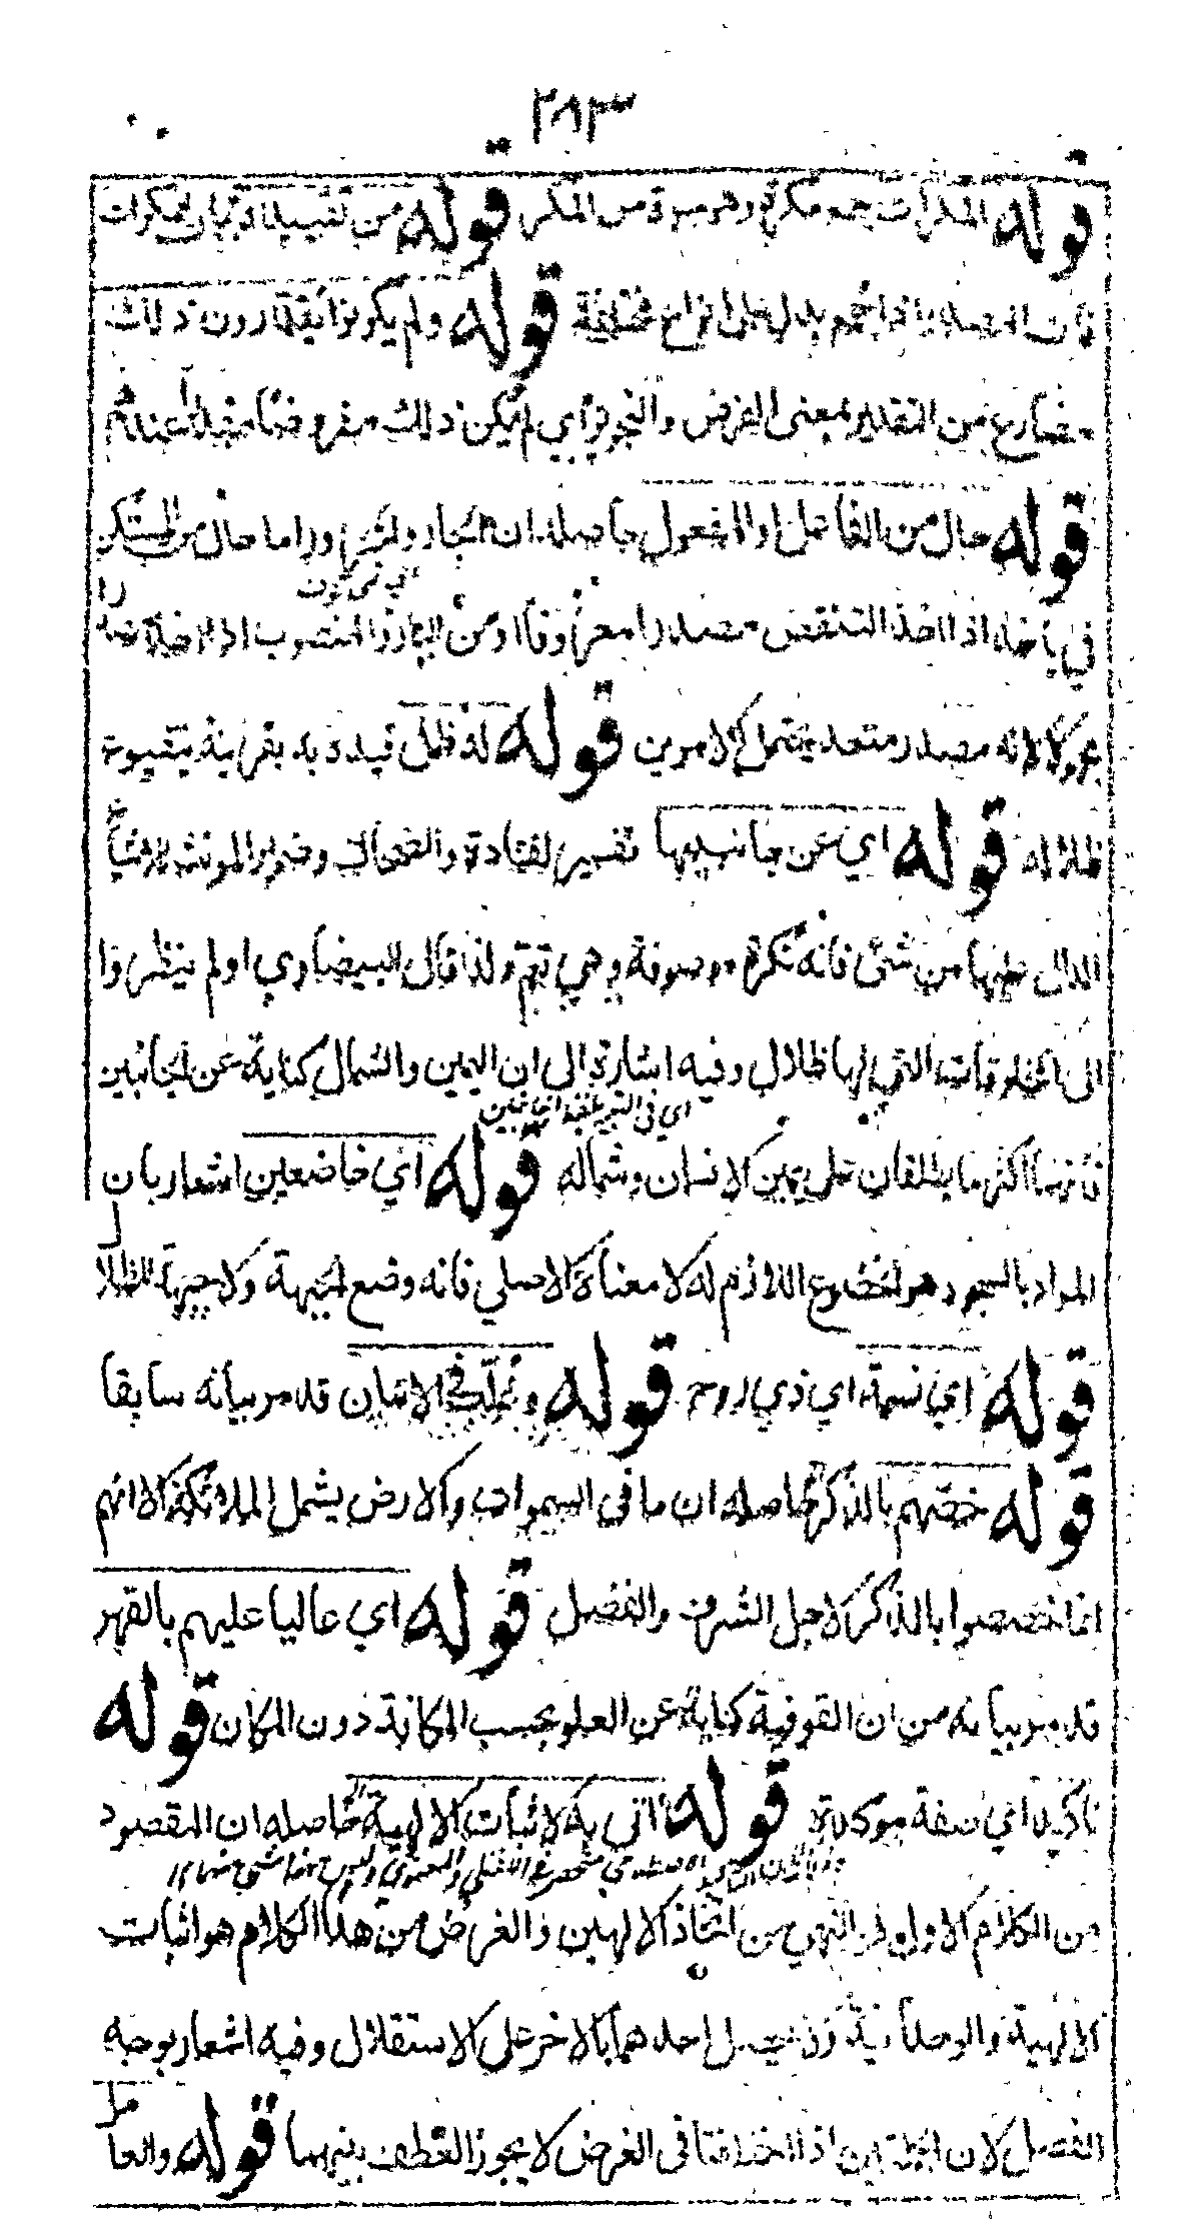 ٢٨٣
قوله المكرات جمع مكرة وهو مرة من المكر قوله من تقييد
فان المصدر اذا جمع يدل على انواع مختلفة قوله ولم يكونوا يقدرون ذلك
مضارع من التقدير بمعنى الفرض والتجويز اي لم يكن ذلك مفروضا عندهم
قوله حال من الفاعل او المفعول حاصله ان الجار والمجرور اما حال من المستكن
في ياخذ اذا اخذ التنقص مصدرا معروفا او من البارز المنصوب اذا
مجهولا لانه مصدر متعد يحتمل الامرين قوله له ظل قيد به بقرينة يتفيؤ
ظلاله قوله اي عن جانبيها تفسير لقتادة والضحاك وضمير المونث للاشياء
الدال عليها من شئ فانه نكرة موصوفة وهي تعم ولذا قال البيضاوي اولم ينظروا
الى المخلوقات التي لها ظلال وفيه اشارة الى ان اليمين والشمال كناية عن الجانبين
اي في
فانهما اكثر ما يطلقان على يمين الانسان وشماله قوله اي خاضعين اشعار بان
المراد بالسجود هو الخضوع اللازم له لا معناه الاصلي فانه وضع الجبهة ولا جبهة للظلال
قوله اي نسمة اي ذي روح قوله وتغلب في الاتيان قد مر بيانه سابقا
قوله خصهم بالذكر حاصله ان ما في السموات والارض يشمل الملائكة الا انهم
انما خصصوا بالذكر لاجل الشرف والفضل قوله اي عاليا عليهم بالقهر
قد مر بيانه من ان الفوقية كناية عن العلو بحسب المكانة دون المكان قوله
تاكيد اي صفة موكدة قوله اتى به لاثبات الالهية حاصله ان المقصود
من الكلام الاول هو النهي من اتخاذ الالهين والغرض من هذا الكلام هو اثبات
الالهية والوحدانية احدهما بالاخر على الاستقلال وفيه اشعار بوجه
الفصل لان الجملتين اذا اختلفتا في الغرض لا يجوز العطف بينهما قوله والعامل